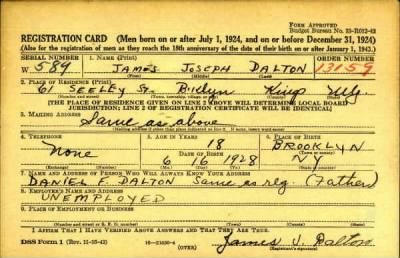 Form Approved
Budget Bureau No. 33-R012-42
REGISTRATION CARD—(Men born on or after July 1, 1924, and on or before December 31, 1924)
(Also for the registration of men as they reach the 18th anniversary of the date of their birth on or after January 1, 1943.)
SERIAL NUMBER 1. NAME (Print) ORDER NUMBER
W 589 JAMES JOSEPH DALTON 13159
(First) (Middle) (Last)
2. PLACE OF RESIDENCE (Print)
61 SEELEY St. Bklyn Kings NY.
(Number and street) (Town, township, village, or city) (County) (State)
[THE PLACE OF RESIDENCE GIVEN ON LINE 2 ABOVE WILL DETERMINE LOCAL BOARD
JURISDICTION; LINE 2 OF REGISTRATION CERTIFICATE WILL BE IDENTICAL]
3. MAILING ADDRESS
Same as above
[Mailing address if other than place indicated on line 2. If same, insert word same]
4. TELEPHONE 5. AGE IN YEARS 6. PLACE OF BIRTH
None 18 BROOKLYN
DATE OF BIRTH (Town or county)
6 16 1928 NY
(Exchange) (Number) (Mo.) (Day) (Yr.) (State or country)
7. NAME AND ADDRESS OF PERSON WHO WILL ALWAYS KNOW YOUR ADDRESS
DANIEL F DALTON Same as reg. (Father)
8. EMPLOYER'S NAME AND ADDRESS
UNEMPLOYED
9. PLACE OF EMPLOYMENT OR BUSINESS
(Number and street or R. F. D. number) (Town) (County) (State)
I AFFIRM THAT I HAVE VERIFIED ABOVE ANSWERS AND THAT THEY ARE TRUE.
DSS Form 1 (Rev. 11-16-42) 16—21630-4 (OVER) James J. Dalton
(Registrant's signature)